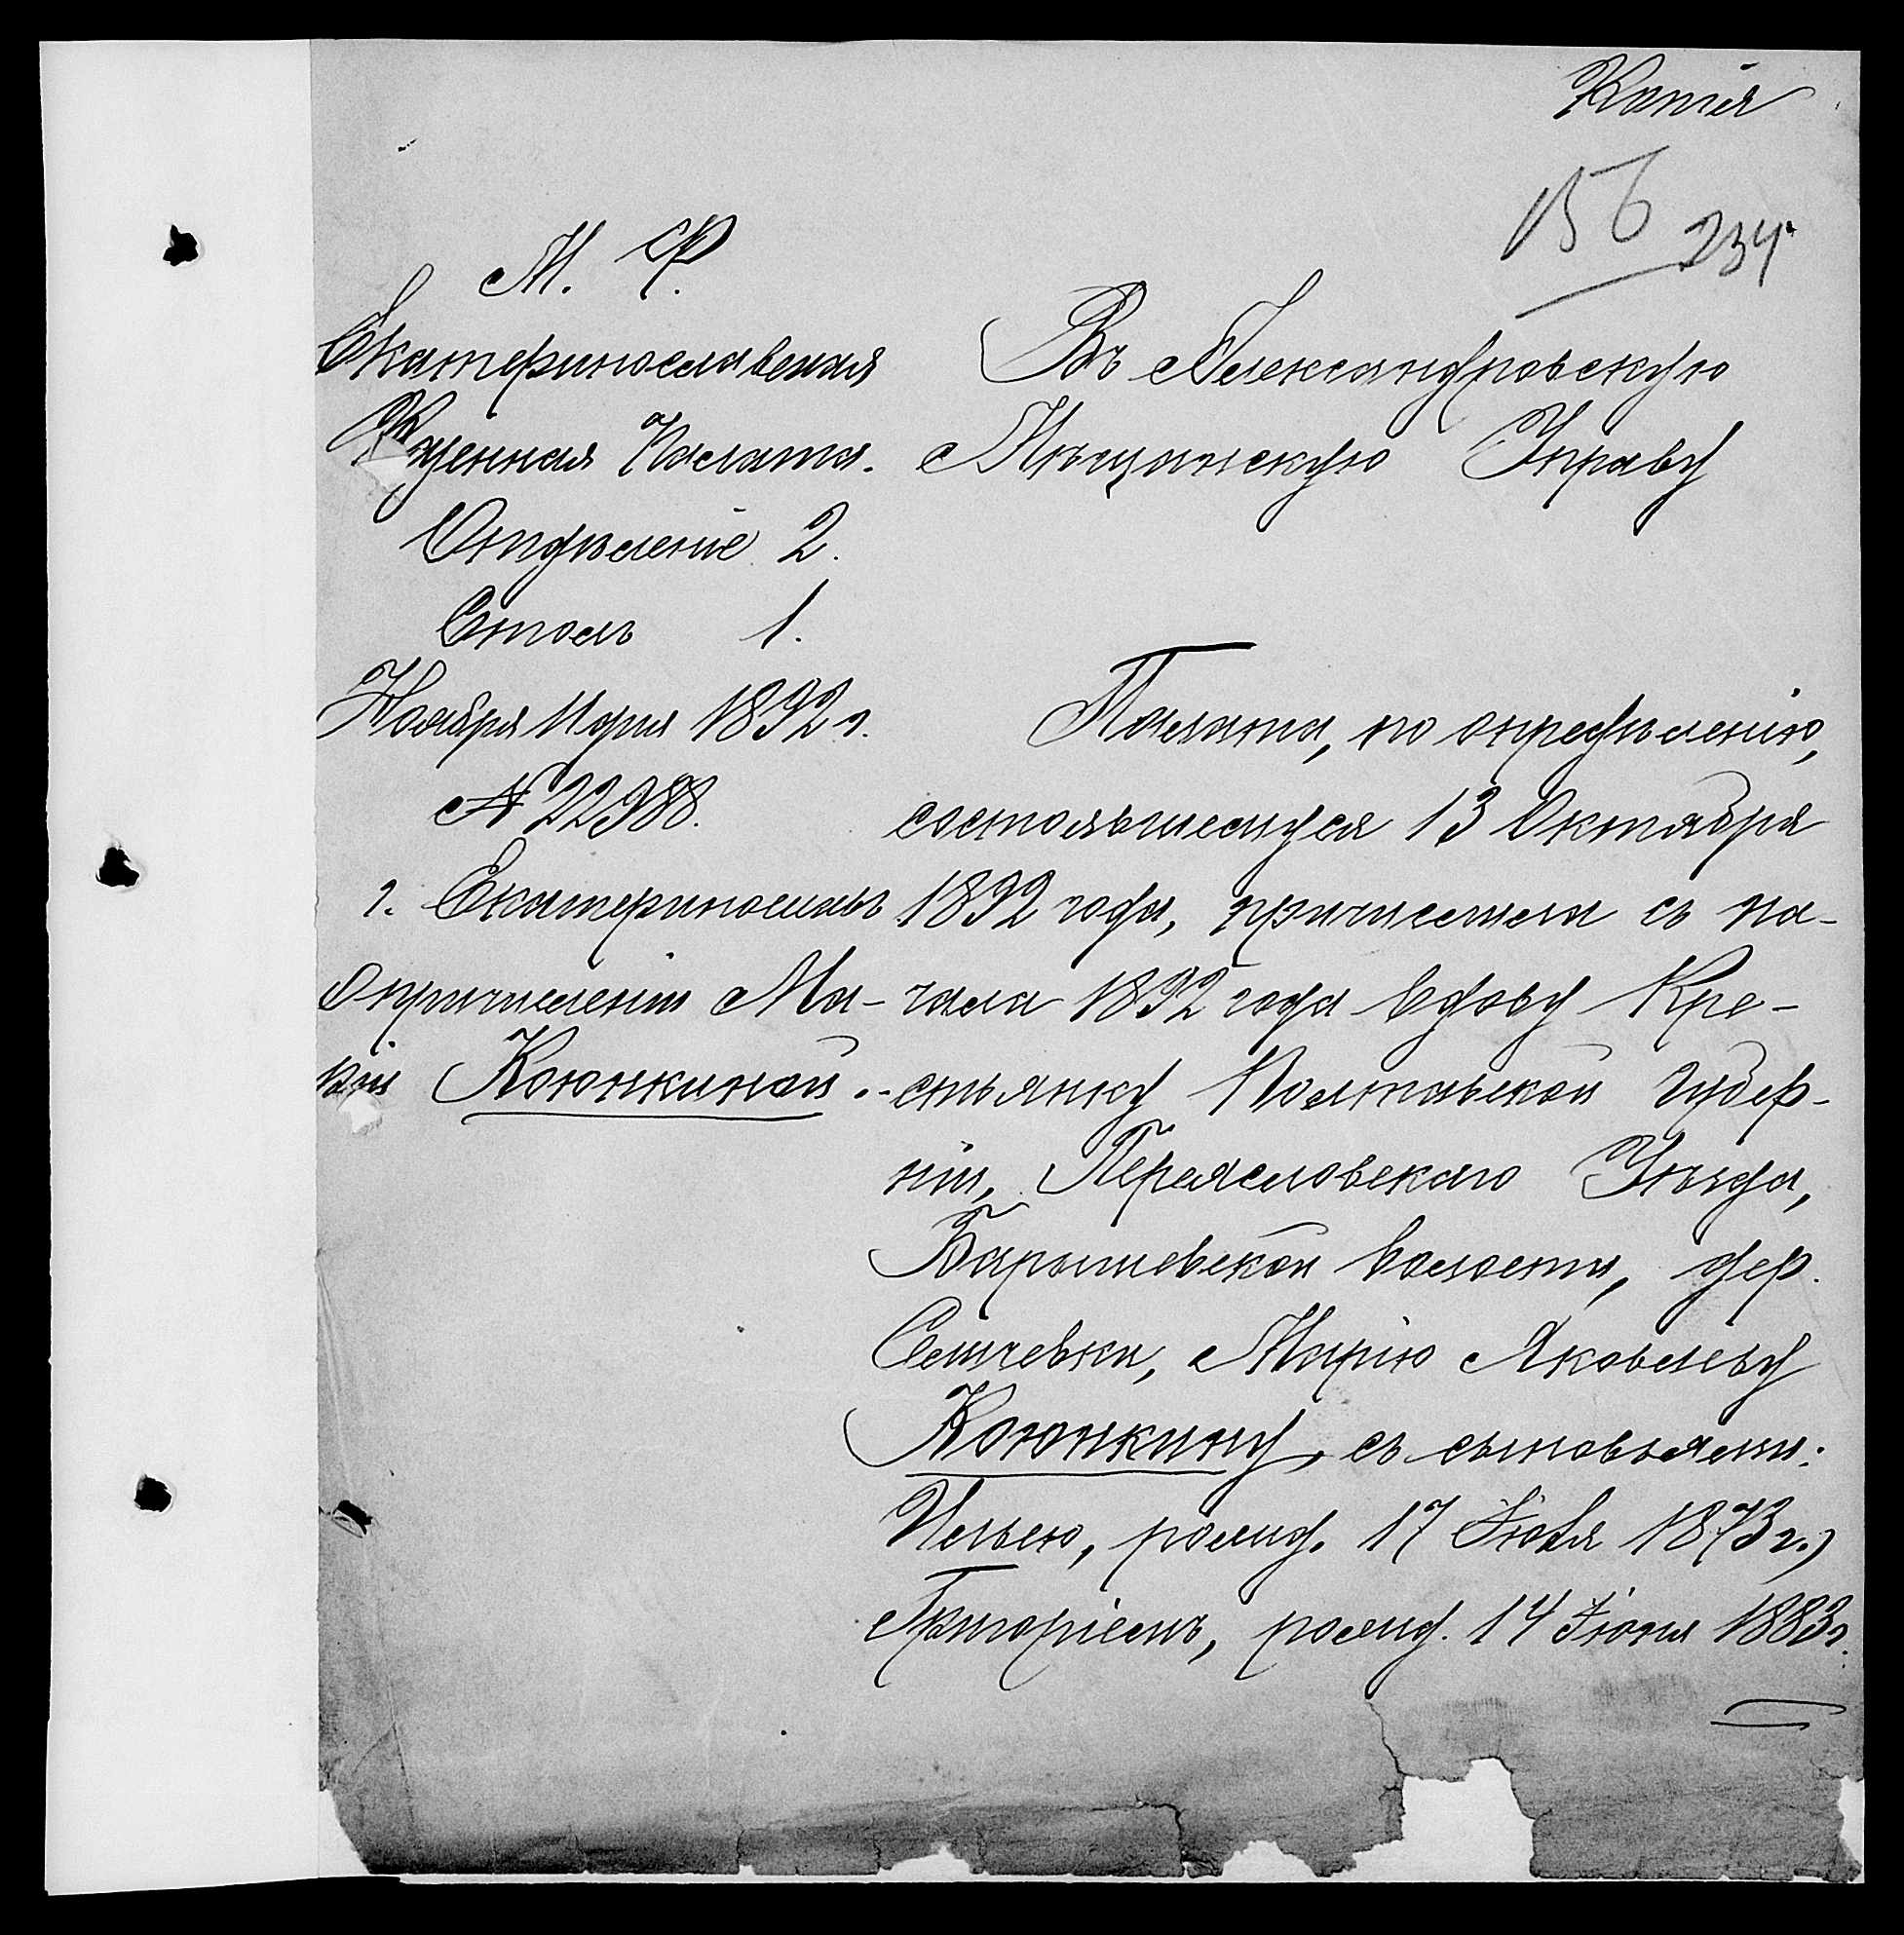 Копія
156
234
М. Ф.
Екатеринославская
Казенная Палата.
Отдѣленіе 2.
Столъ 1.
Ноября 11 дня 1892 г.
№ 22988.
г. Екатеринославъ
О причисленіи Ма-
ріи Коюнкиной.
Въ Александровскую
Мѣщанскую Управу
Палата, по опредѣленію,
состоявшемуся 13 Октября
1892 года, причислила съ на-
чала 1892 года вдову Кре-
стьянку Полтавской губер-
ніи, Переясловскаго Уѣзда,
Барышевской волости, дер.
Селичевки, Марію Яковлеву
Коюнкину, съ сыновьями:
Ильею, рожд. 17 Июля 1873 г.,
Григоріемъ, рожд. 14 Июня 1883 г.